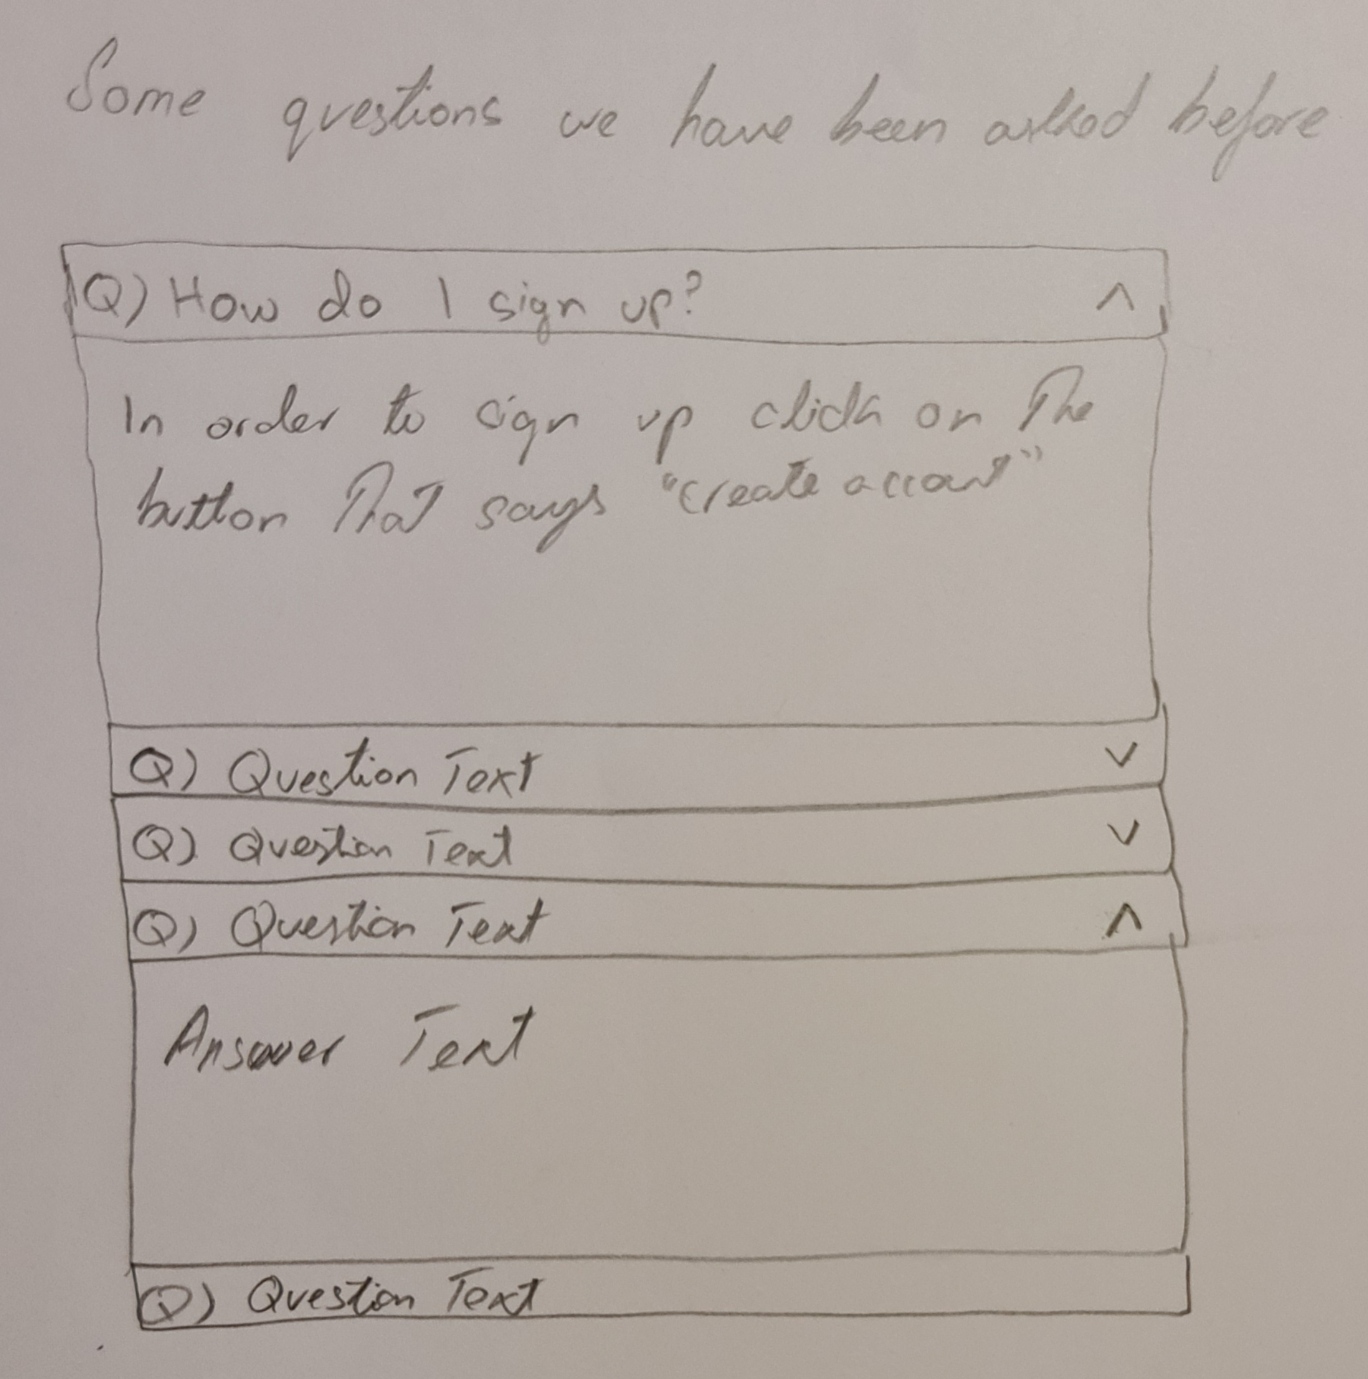 Some questions we have been asked before
Q) How do I sign up? ^
In order to sign up click on The
button That says "create account"
Q) Question Text v
Q) Question Text v
Q) Question Text ^
Answer Text
Q) Question Text